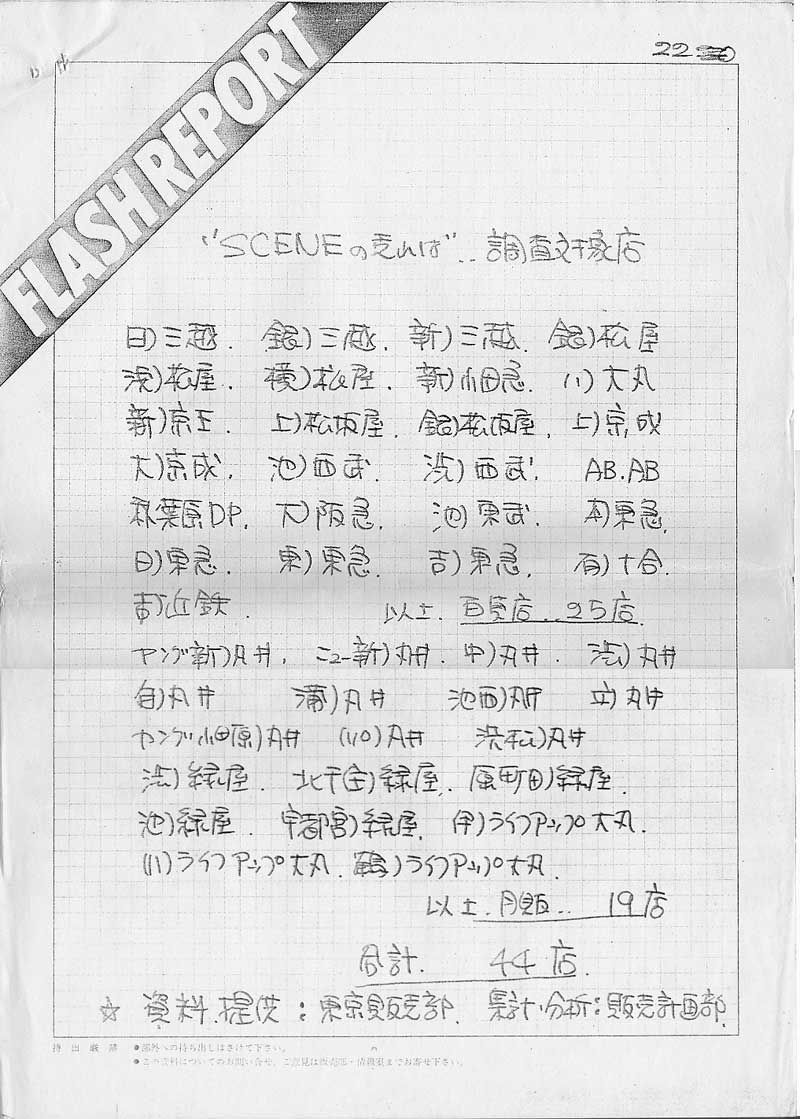 22
FLASH REPORT
"SCENEの売れば"‥調査対象店
日)三越. 銀)三越. 新)三越. 銀)松屋
浅)松屋. 横)松屋. 新)小田急. 川)大丸
新)京王 上)松坂屋. 銀)松坂屋. 上)京成
大)京成. 池)西武. 渋)西武. AB.AB
秋葉原DP. 大)阪急. 池)東武. 本)東急.
日)東急. 東)東急. 吉)東急. 有)十合.
吉)近鉄. 以上. 百貨店‥25店.
ヤング新)丸井. ニュー新)丸井. 中)丸井. 渋)丸井
自)丸井 蒲)丸井 池西)丸井 立)丸井
ヤング小田原)丸井 (川)丸井 浜松)丸井
渋)緑屋. 北千住)緑屋. 原町田)緑屋.
池)緑屋. 宇都宮)緑屋. (伊)ライフアップ大丸.
(川)ライフアップ大丸. 鶴)ライフアップ大丸.
以上. 月販‥ 19店
合計. 44店.
☆ 資料.提供:東京販売部. 集計・分析:販売計画部.
持出厳禁 ●部外への持ち出しはさけて下さい。
●この資料についてのお問い合せ、ご意見は販売部・情報室までお寄せ下さい。